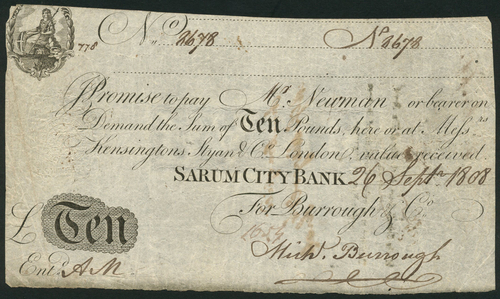 No. 2678 No. 2678
778
I Promise to pay Mr. Newman or bearer on
Demand the Sum of Ten Pounds, here or at Messrs
Kensingtons Styan & Co. London, value received
SARUM CITY BANK 26 Septr 1808
For Burrough & Co.
£ Ten
Michl. Burrough
Entd. A M